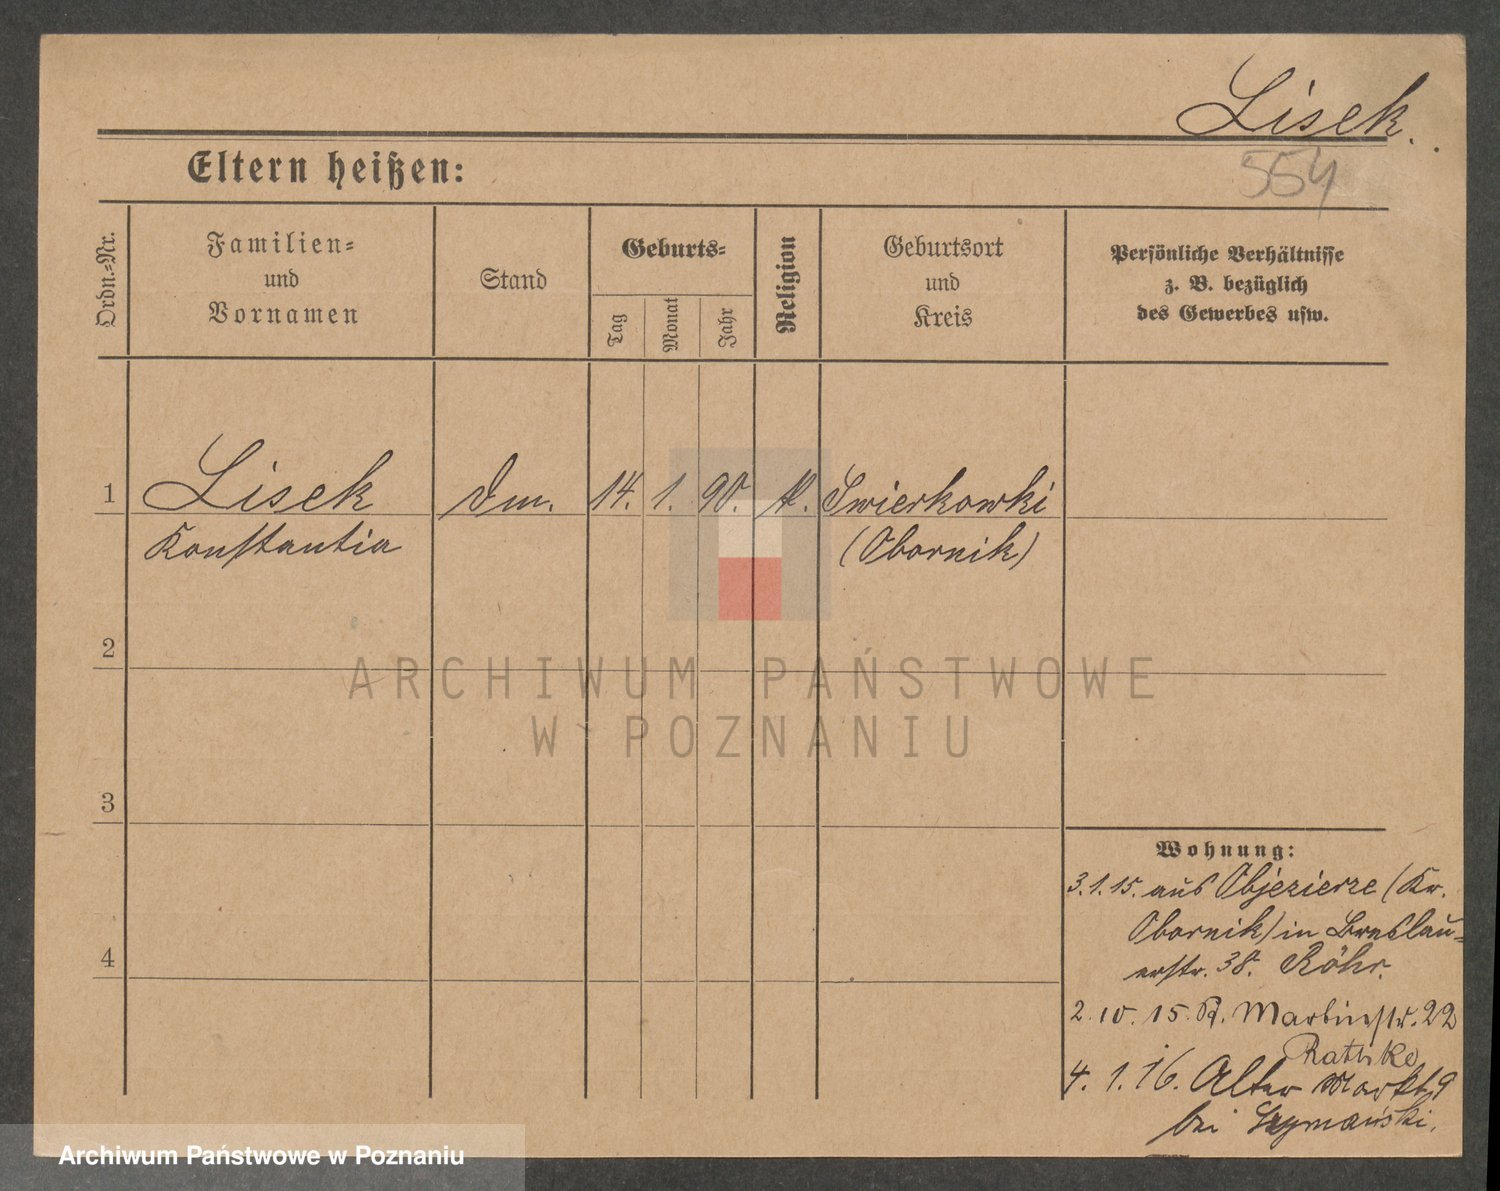 Lisek.
554
Eltern heißen:
Ordn.=Nr.
Familien=
und
Vornamen
Stand
Geburts=
Tag
Monat
Jahr
Religion
Geburtsort
und
Kreis
Persönliche Verhältnisse
z. B. bezüglich
des Gewerbes usw.
1 Lisek Dm. 14. 1. 90. k. Swierkowki
Konstantia (Obornik)
2
3
4
ARCHIWUM PAŃSTWOWE
W POZNANIU
Wohnung:
3.1.15. aus Objezierze (Kr.
Obornik) in Breslau=
erstr. 38. Röhr.
2.10.15. St. Martinstr. 22
Rathke
4.1.16. Alter Markt 9
bei Szymański.
Archiwum Państwowe w Poznaniu